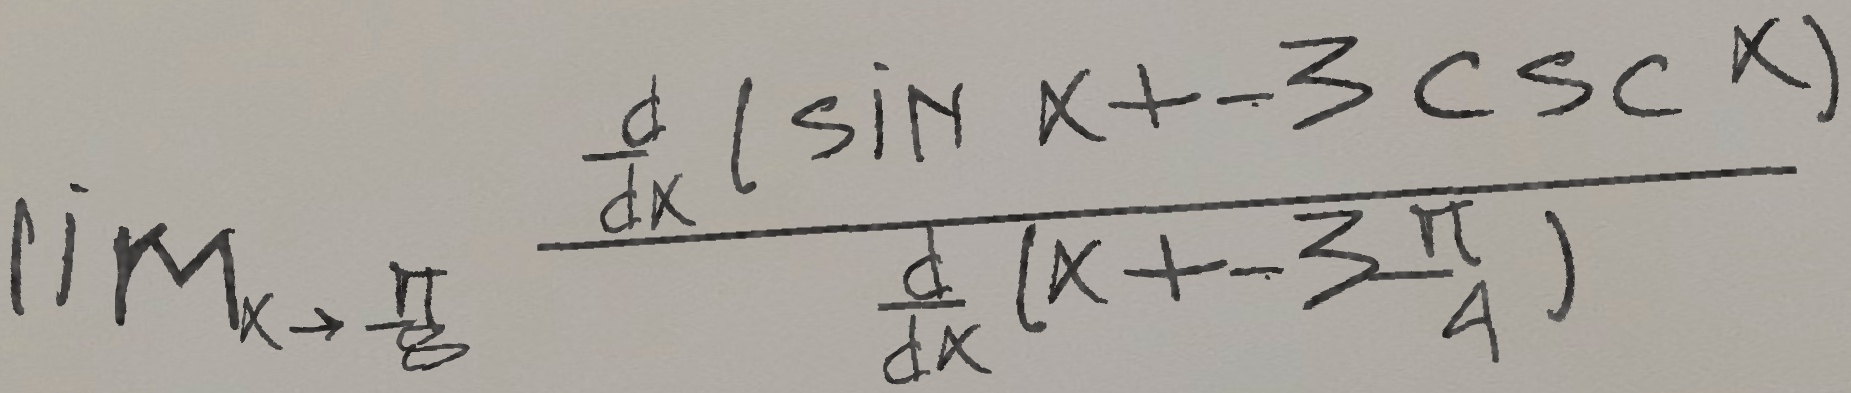 \lim_{x \to \frac{\pi}{8}} \frac{\frac{d}{dx}(\sin x + -3 \csc x)}{\frac{d}{dx}(x + -3\frac{\pi}{4})}